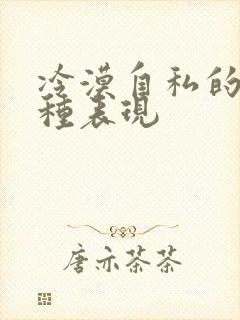 冷漠自私的
种表现
唐亦茶茶